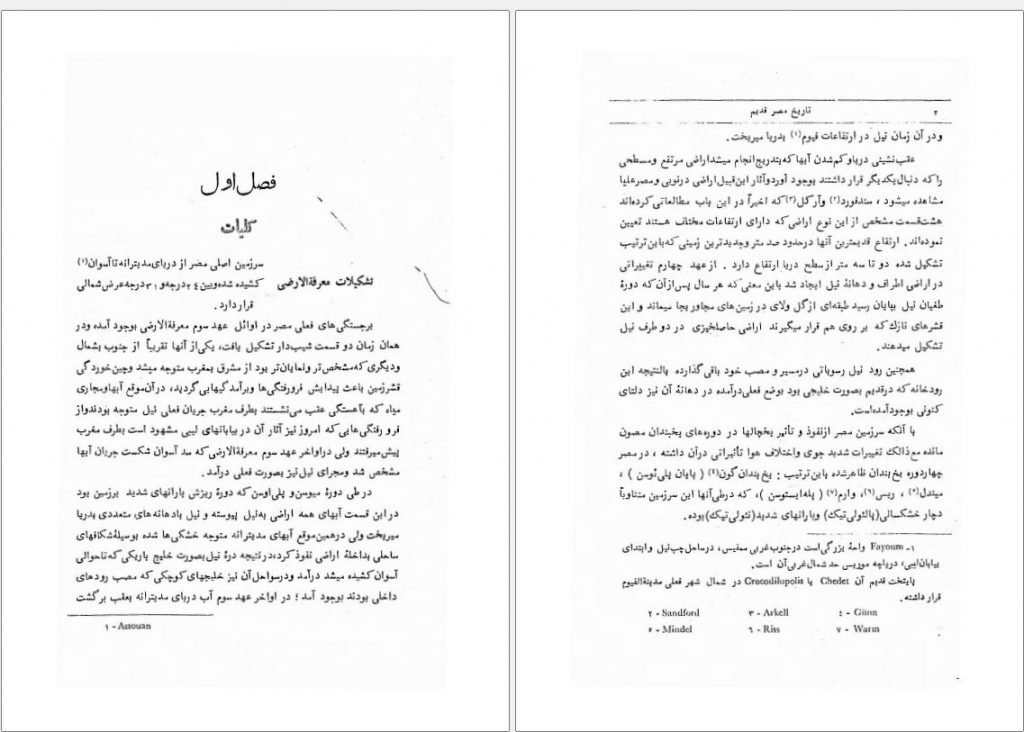 فصل اول
کلیات
تشکیلات معرفةالارضی
سرزمین اصلی مصر از دریای مدیترانه تا آسوان(۱)
کشیده شده و بین ۲۴ درجه و ۳۱ درجه عرض شمالی
قرار دارد .
برجستگی‌های فعلی مصر در اوائل عهد سوم معرفةالارضی بوجود آمده و در
همان زمان دو قسمت شیب‌دار تشکیل یافت، یکی از آنها تقریباً از جنوب بشمال
و دیگری که مشخص‌تر و نمایان‌تر بود از مشرق بمغرب متوجه میشد و چین خوردگی
قشر زمین باعث پیدایش فرورفتگی‌ها و برآمدگیهایی گردید، در آن موقع آبها و مجاری
میاه که بآهستگی عقب می‌نشستند بطرف مغرب جریان فعلی نیل متوجه بودند و از
فرو رفتگی‌هایی که امروز نیز آثار آن در بیابانهای لیبی مشهود است بطرف مغرب
پیش میرفتند ولی در اواخر عهد سوم معرفةالارضی که سد آسوان شکست جریان آبها
مشخص شد و مجرای نیل نیز بصورت فعلی درآمد.
در طی دورهٔ میوسن و پلی‌اوسن که دورهٔ ریزش بارانهای شدید برزمین بود
در این قسمت آبهای همه اراضی به‌نیل پیوسته و نیل بادهانه‌های متعددی بدریا
میریخت ولی درهمین موقع آبهای مدیترانه متوجه خشکی‌ها شده بوسیلهٔ شکافهای
ساحلی بداخلهٔ اراضی نفوذ کرد، درنتیجه درهٔ نیل بصورت خلیج باریکی که تاحوالی
آسوان کشیده میشد درآمد و درسواحل آن نیز خلیجهای کوچکی که مصب رودهای
داخلی بودند بوجود آمد ؛ در اواخر عهد سوم آب دریای مدیترانه بعقب برگشت
۱ - Assouan
تاریخ مصر قدیم
۲
و در آن زمان نیل در ارتفاعات فیوم(۱) بدریا میریخت.
عقب‌نشینی دریا و کم‌شدن آبها که بتدریج انجام میشد اراضی مرتفع و مسطحی
را که دنبال یکدیگر قرار داشتند بوجود آورد و آثار این قبیل اراضی در نوبی و مصر علیا
مشاهده میشود ، سندفورد(۲) و آرکل(۳) که اخیراً در این باب مطالعاتی کرده‌اند
هشت قسمت مشخص از این نوع اراضی که دارای ارتفاعات مختلف هستند تعیین
نموده‌اند. ارتفاع قدیمترین آنها در حدود صد متر و جدیدترین زمینی که باین ترتیب
تشکیل شده دو تا سه متر از سطح دریا ارتفاع دارد . از عهد چهارم تغییراتی
در اراضی اطراف و دهانهٔ نیل ایجاد شد باین معنی که هر سال پس از آن که دورهٔ
طغیان نیل بپایان رسید طبقه‌ای از گل و لای در زمین‌های مجاور بجا میماند و این
قشرهای نازک که بر روی هم قرار میگیرند اراضی حاصلخیزی در دو طرف نیل
تشکیل میدهند.
همچنین رود نیل رسوباتی درمسیر و مصب خود باقی گذارده بالنتیجه این
رودخانه که درقدیم بصورت خلیجی بود بوضع فعلی درآمده در دهانهٔ آن نیز دلتای
کنونی بوجود آمده است.
با آنکه سرزمین مصر از نفوذ و تأثیر یخچالها در دوره‌های یخبندان مصون
مانده مع‌ذالک تغییرات شدید جوی و اختلاف هوا تأثیراتی در آن داشته ، در مصر
چهار دوره یخ‌بندان ظاهر شده باین ترتیب : یخ‌بندان گون(٤) ( پایان پلی‌ئوسن ) ،
میندل(٥) ، ریس(٦)، وارم(٧) ( پله‌ایستوسن )، که در طی آنها این سرزمین متناوباً
دچار خشکسالی(پالئولی‌تیک) و بارانهای شدید(نئولی‌تیک) بوده.
۱ - Fayoum واحهٔ بزرگی است درجنوب غربی ممفیس، درساحل چپ نیل و ابتدای
بیابان لیبی، دریاچه موریس حد شمال غربی آن است.
پایتخت قدیم آن Chedet یا Crocodilopolis در شمال شهر فعلی مدینةالفیوم
قرار داشته.
۲ - Sandford ۳ - Arkell ٤ - Günn
٥ - Mindel ٦ - Riss ٧ - Warm